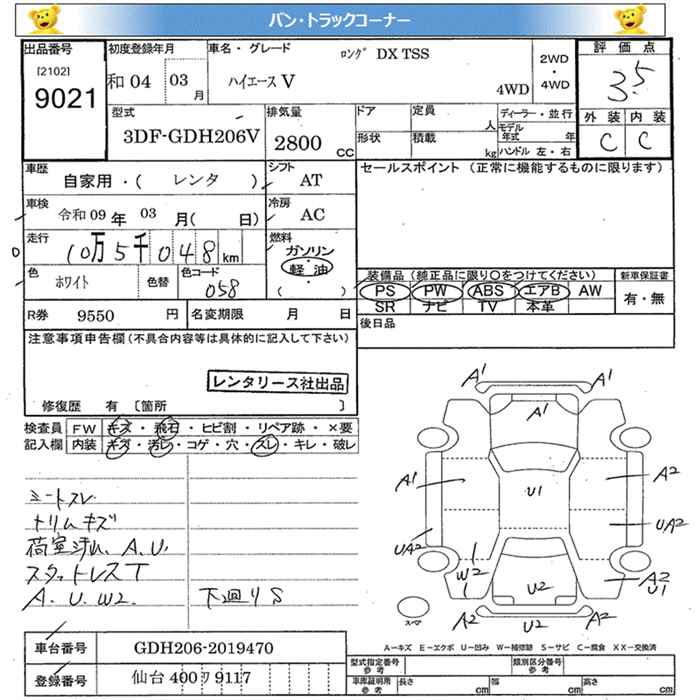 バン・トラックコーナー
出品番号
[2102]
9021
初度登録年月
和04 03 月
車名・グレード
ロング DX TSS
ハイエースV
4WD
2WD
・
4WD
評価点
3.5
外装 内装
C C
型式
3DF-GDH206V
排気量
2800 CC
ドア
形状
定員 人
積載 kg
ディーラー・並行
モデル年式 年
ハンドル 左・右
車歴
自家用・( レンタ )
シフト
AT
セールスポイント (正常に機能するものに限ります)
車検
令和09年 03 月( 日)
冷房
AC
走行
10万5千048 km
燃料
ガソリン
・
軽油
( )
色
ホワイト
色替
色コード
058
装備品 (純正品に限り○をつけてください)
PS PW ABS エアB AW
SR ナビ TV 本革
新車保証書
有・無
R券 9550 円
名変期限 月 日
後日品
注意事項申告欄(不具合内容等は具体的に記入して下さい)
レンタリース社出品
修復歴 有 [箇所 ]
検査員
記入欄
FW キズ・飛石・ヒビ割・リペア跡・×要
内装 キズ・汚レ・コゲ・穴・スレ・キレ・破レ
シートスレ
トリムキズ
荷室汚れ、A.U.
スタットレスT
A.U.W2.
下廻りS
A1 A1
A1
A1 U1 A2
UA2 UA2
W2 U2 A2
U1
A2 U2 A2
スペア
A−キズ E−エクボ U−凹み W−補修跡 S−サビ C−腐食 XX−交換済
車台番号 GDH206-2019470
登録番号 仙台 400 ワ 9117
型式指定番号
参考
類別区分番号
参考
車庫証明用
参考
長さ cm 幅 cm 高さ cm